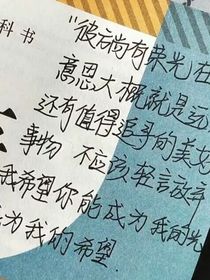 科书
“彼端有荣光在
意思大概就是远
还有值得追寻的美好
事物 不应该轻言放弃
我希望你能成为我的光
成为我的希望.